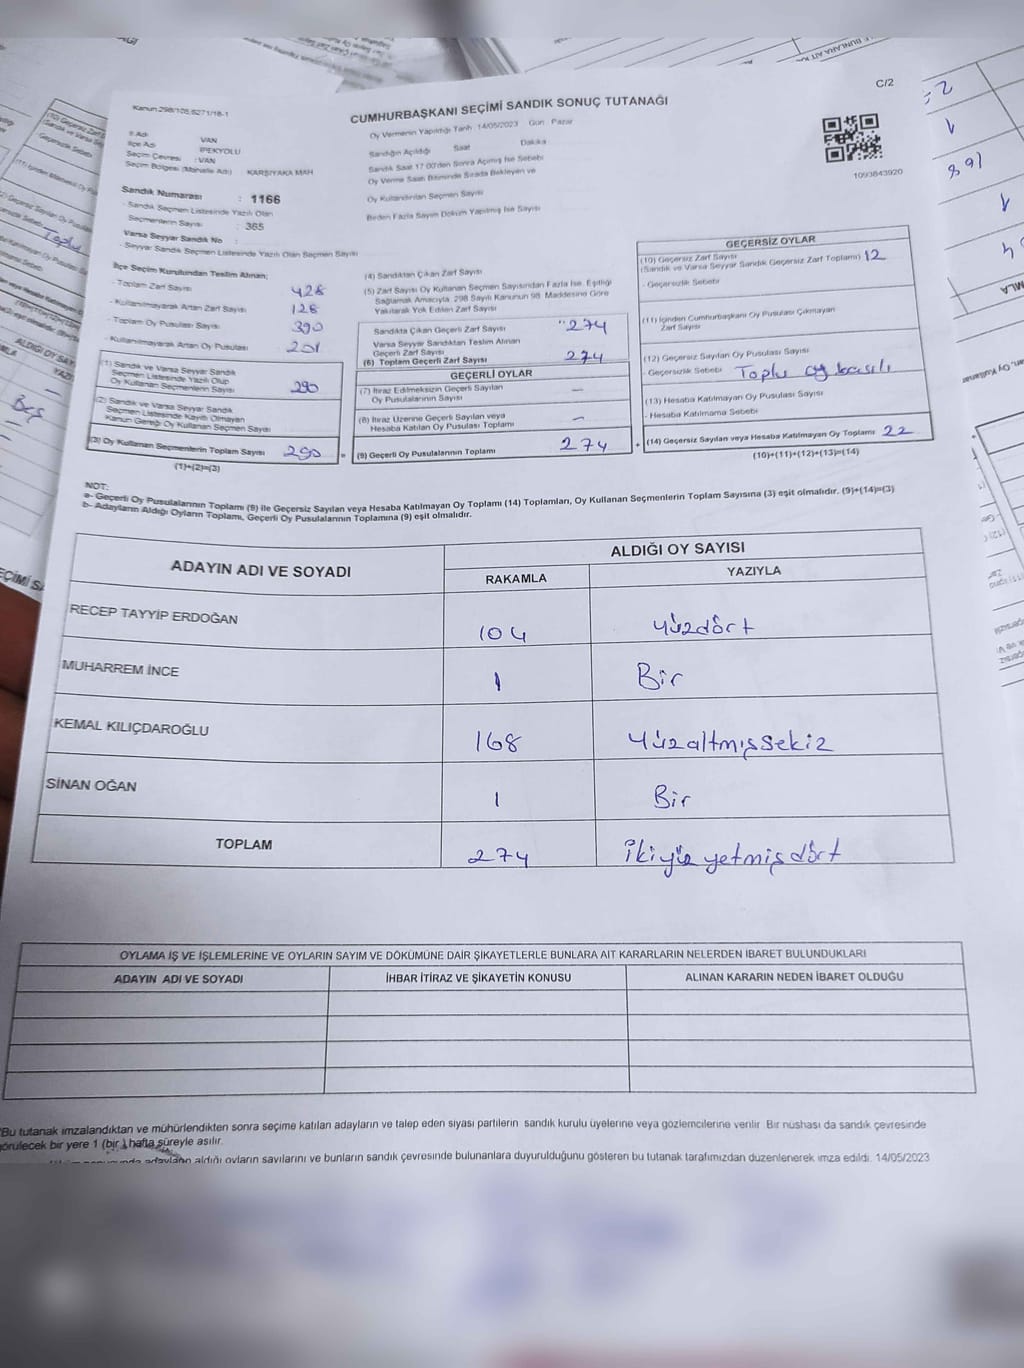 C/2
Kanun.298/105,6271/16-1
CUMHURBAŞKANI SEÇİMİ SANDIK SONUÇ TUTANAĞI
Oy Vermenin Yapıldığı Tarih : 14/05/2023 Gün : Pazar
İl Adı : VAN
İlçe Adı : İPEKYOLU
Seçim Çevresi : VAN
Seçim Bölgesi (Mahalle Adı) : KARŞIYAKA MAH
Sandığın Açıldığı Saat Dakika
Sandık Saat 17:00'den Sonra Açılmış İse Sebebi
Oy Verme Saati Bitiminde Sırada Bekleyen ve
Oy Kullandırılan Seçmen Sayısı
Birden Fazla Sayım Döküm Yapılmış İse Sayısı
1093843920
Sandık Numarası : 1166
- Sandık Seçmen Listesinde Yazılı Olan
Seçmenlerin Sayısı : 365
Varsa Seyyar Sandık No :
- Seyyar Sandık Seçmen Listesinde Yazılı Olan Seçmen Sayısı
İlçe Seçim Kurulundan Teslim Alınan;
- Toplam Zarf Sayısı 428
- Kullanılmayarak Artan Zarf Sayısı 128
- Toplam Oy Pusulası Sayısı 390
- Kullanılmayarak Artan Oy Pusulası
(1) Sandık ve Varsa Seyyar Sandık
Seçmen Listesinde Yazılı Olup
Oy Kullanan Seçmenlerin Sayısı 290
(2) Sandık ve Varsa Seyyar Sandık
Seçmen Listesinde Kayıtlı Olmayan
Kanun Gereği Oy Kullanan Seçmen Sayısı
(3) Oy Kullanan Seçmenlerin Toplam Sayısı 290
(1)+(2)=(3)
(4) Sandıktan Çıkan Zarf Sayısı
(5) Zarf Sayısı Oy Kullanan Seçmen Sayısından Fazla İse, Eşitliği
Sağlamak Amacıyla, 298 Sayılı Kanunun 98. Maddesine Göre
Yakılarak Yok Edilen Zarf Sayısı
Sandıkta Çıkan Geçerli Zarf Sayısı 274
Varsa Seyyar Sandıktan Teslim Alınan
Geçerli Zarf Sayısı
(6) Toplam Geçerli Zarf Sayısı 274
GEÇERLİ OYLAR
(7) İtiraz Edilmeksizin Geçerli Sayılan
Oy Pusulalarının Sayısı —
(8) İtiraz Üzerine Geçerli Sayılan veya
Hesaba Katılan Oy Pusulası Toplamı —
(9) Geçerli Oy Pusulalarının Toplamı 274
GEÇERSİZ OYLAR
(10) Geçersiz Zarf Sayısı
(Sandık ve Varsa Seyyar Sandık Geçersiz Zarf Toplamı) 12
- Geçersizlik Sebebi
(11) İçinden Cumhurbaşkanı Oy Pusulası Çıkmayan
Zarf Sayısı
(12) Geçersiz Sayılan Oy Pusulası Sayısı
- Geçersizlik Sebebi Toplu oy
(13) Hesaba Katılmayan Oy Pusulası Sayısı
- Hesaba Katılmama Sebebi
(14) Geçersiz Sayılan veya Hesaba Katılmayan Oy Toplamı 22
(10)+(11)+(12)+(13)=(14)
NOT:
a- Geçerli Oy Pusulalarının Toplamı (9) ile Geçersiz Sayılan veya Hesaba Katılmayan Oy Toplamı (14) Toplamları, Oy Kullanan Seçmenlerin Toplam Sayısına (3) eşit olmalıdır. (9)+(14)=(3)
b- Adayların Aldığı Oyların Toplamı, Geçerli Oy Pusulalarının Toplamına (9) eşit olmalıdır.
ADAYIN ADI VE SOYADI
ALDIĞI OY SAYISI
RAKAMLA YAZIYLA
RECEP TAYYİP ERDOĞAN 104 Yüzdört
MUHARREM İNCE 1 Bir
KEMAL KILIÇDAROĞLU 168 Yüzaltmışsekiz
SİNAN OĞAN 1 Bir
TOPLAM 274 ikiyüz yetmiş dört
OYLAMA İŞ VE İŞLEMLERİNE VE OYLARIN SAYIM VE DÖKÜMÜNE DAİR ŞİKAYETLERLE BUNLARA AİT KARARLARIN NELERDEN İBARET BULUNDUKLARI
ADAYIN ADI VE SOYADI İHBAR İTİRAZ VE ŞİKAYETİN KONUSU ALINAN KARARIN NEDEN İBARET OLDUĞU
Bu tutanak imzalandıktan ve mühürlendikten sonra seçime katılan adayların ve talep eden siyasi partilerin sandık kurulu üyelerine veya gözlemcilerine verilir. Bir nüshası da sandık çevresinde
görülecek bir yere 1 (bir ) hafta süreyle asılır.
adayların aldığı oyların sayılarını ve bunların sandık çevresinde bulunanlara duyurulduğunu gösteren bu tutanak tarafımızdan düzenlenerek imza edildi. 14/05/2023